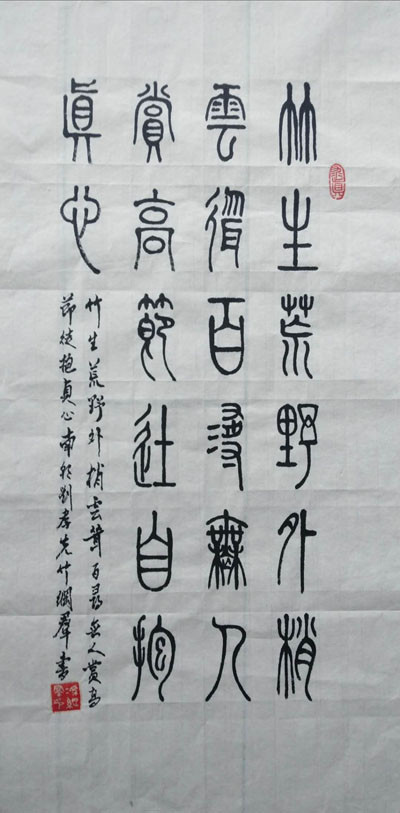 竹生荒野外梢
雲聳百尋無人
賞高節徒自抱
貞心
竹生荒野外梢云聳百尋無人賞高
節徒抱貞心南朝劉孝先竹綱羣書